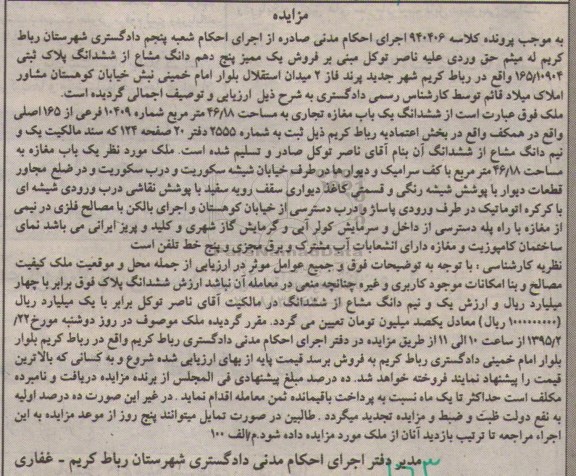 مزایده
به موجب پرونده کلاسه ۹۴۰۴۰۶ اجرای احکام مدنی صادره از اجرای احکام شعبه پنجم دادگستری شهرستان رباط
کریم له میثم حق وردی علیه ناصر توکل مبنی بر فروش یک ممیز پنج دهم دانگ مشاع از ششدانگ پلاک ثبتی
۱۶۵/۱۰۹۰۴ واقع در رباط کریم شهر جدید پرند فاز ۲ میدان استقلال بلوار امام خمینی نبش خیابان کوهستان مشاور
املاک میلاد قائم توسط کارشناس رسمی دادگستری به شرح ذیل ارزیابی و توصیف اجمالی گردیده است.
ملک فوق عبارت است از ششدانگ یک باب مغازه تجاری به مساحت ۴۶/۱۸ متر مربع شماره ۱۰۴۰۹ فرعی از ۱۶۵ اصلی
واقع در همکف واقع در بخش اعتمادیه رباط کریم ذیل ثبت به شماره ۲۵۵۵ دفتر ۲۰ صفحه ۱۲۴ که سند مالکیت یک و
نیم دانگ مشاع از ششدانگ آن بنام آقای ناصر توکل صادر و تسلیم شده است. ملک مورد نظر یک باب مغازه به
مساحت ۴۶/۱۸ متر مربع با کف سرامیک و دیوارها در طرف خیابان شیشه سکوریت و درب سکوریت و در ضلع مجاور
قطعات دیوار با پوشش شیشه رنگی و قسمتی کاغذ دیواری سقف رویه سفید با پوشش نقاشی درب ورودی شیشه ای
با کرکره اتوماتیک در طرف ورودی پاساژ و درب دسترسی از خیابان کوهستان و اجرای بالکن با مصالح فلزی در نیمی
از مغازه با راه پله دسترسی از داخل و سرمایش کولر آبی و گرمایش گاز شهری و کلید و پریز ایرانی می باشد نمای
ساختمان کامپوزیت و مغازه دارای انشعابات آب مشترک و برق مجزی و پنج خط تلفن است
نظریه کارشناسی : با توجه به توضیحات فوق و جمیع عوامل موثر در ارزیابی از جمله محل و موقعیت ملک کیفیت
مصالح و بنا امکانات موجود کاربری و غیره چنانچه منعی در معامله آن نباشد ارزش ششدانگ پلاک فوق برابر با چهار
میلیارد ریال و ارزش یک و نیم دانگ مشاع از ششدانگ در مالکیت آقای ناصر توکل برابر با یک میلیارد ریال
(۱۰۰۰۰۰۰۰۰۰ ریال) معادل یکصد میلیون تومان تعیین می گردد. مقرر گردیده ملک موصوف در روز دوشنبه مورخ ۲۲/
۱۳۹۵/۲ از ساعت ۱۰ الی ۱۱ از طریق مزایده در دفتر اجرای احکام مدنی دادگستری رباط کریم واقع در رباط کریم بلوار
بلوار امام خمینی دادگستری رباط کریم به فروش برسد قیمت پایه از بهای ارزیابی شده شروع و به کسانی که بالاترین
قیمت را پیشنهاد نمایند فروخته خواهد شد. ده درصد مبلغ پیشنهادی فی المجلس از برنده مزایده دریافت و نامبرده
مکلف است حداکثر تا یک ماه نسبت به پرداخت باقیمانده ثمن معامله اقدام نماید . در غیر این صورت ده درصد اولیه
به نفع دولت ضبط و ضبط و مزایده تجدید میگردد . طالبین در صورت تمایل میتوانند پنج روز از موعد مزایده به این
اجراء مراجعه تا ترتیب بازدید آنان از ملک مورد مزایده داده شود.م/الف ۱۰۰
مدیر دفتر اجرای احکام مدنی دادگستری شهرستان رباط کریم - غفاری